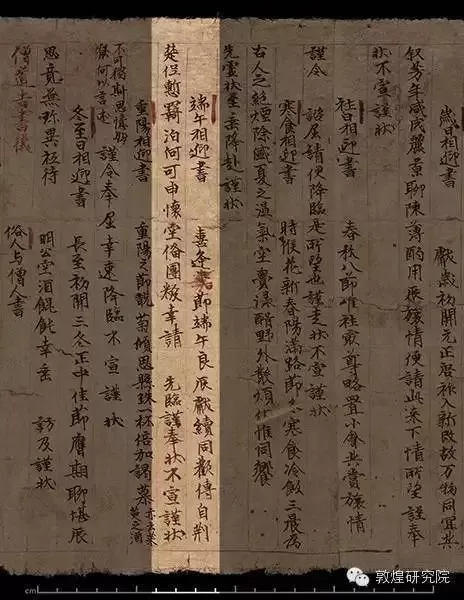 歲日相迎書　獻歲初開元正啓祚入新改故万物同宜共
叙芳年咸成麗景聊陳薄酌用展旅情便請此來下情所望謹奉
狀不宣謹狀
社日相迎書　春秋八節唯社最尊略置小會共賞旅情
謹令　諮屈請便降臨是所望也謹走狀不宣謹狀
寒食相迎書　時候花新春陽滿路節名寒食冷飯三晨為
古人之絕煙除盛夏之温氣空賫渌醑野外散煩伏惟同饗
先靈狀至垂降赴謹狀
端午相迎書　喜逢嘉節端午良辰獻續同歡傳自荆
楚但慙羇泊何可申懷空俻團粽幸請　先臨謹奉狀不宣謹狀
重陽相迎書　重陽之節翫菊傾思懸珠一杯倍加渴慕
不可獨斯思憶朋儕何以言述　謹令奉屈幸速降臨不宣謹狀
冬至日相迎書　長至初開三冬正中佳節膺期聊堪展
思竟無珎異秪待　明公空酒餛飩幸垂　訪及謹狀
僧道吉書儀　俗人与僧人書
cm
敦煌研究院